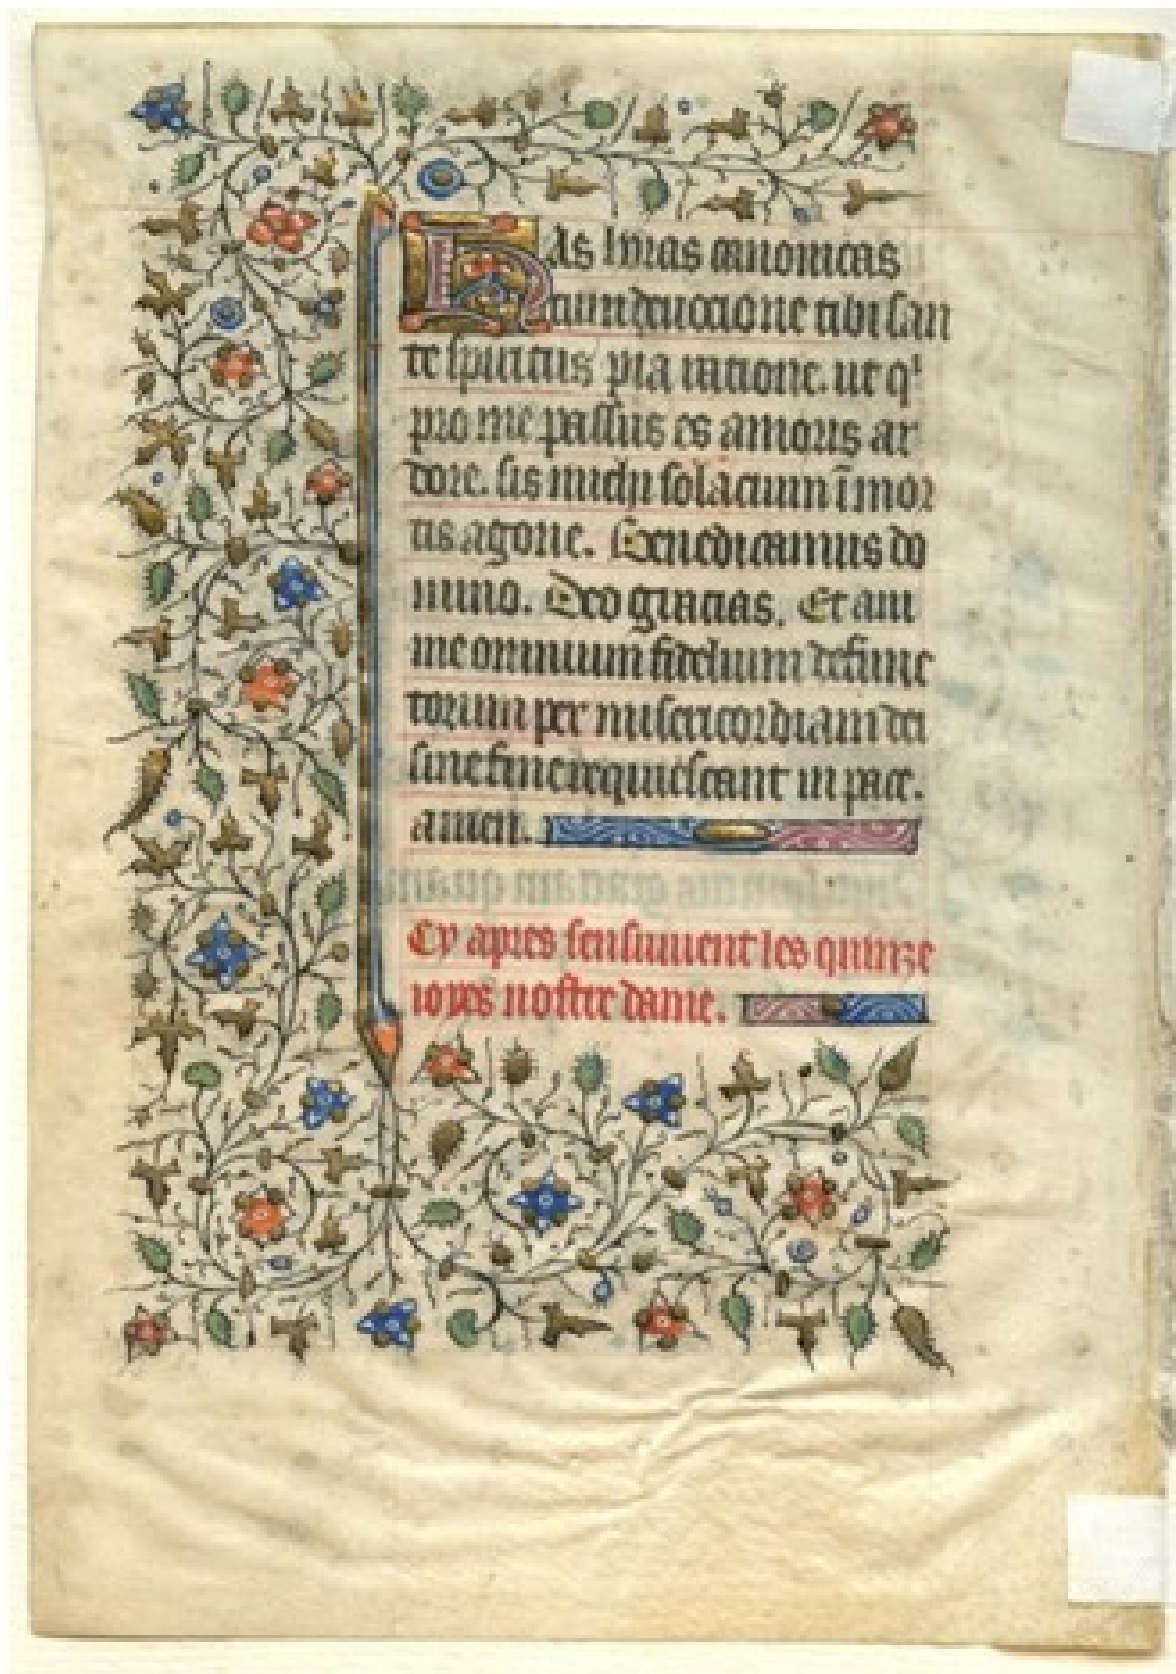 Has horas canonicas
cum deuocione tibi san
te spiritus pia racione. ut qi
pro me passus es amoris ar
dore. sis michi solacium ī mor
tis agone. Benedicamus do
mino. Deo gracias. Et ani
me omnium fidelium defunc
torum per misericordiam dei
sine fine requiescant in pace.
amen.
Cy apres sensuiuent les quinze
ioyes nostre dame.